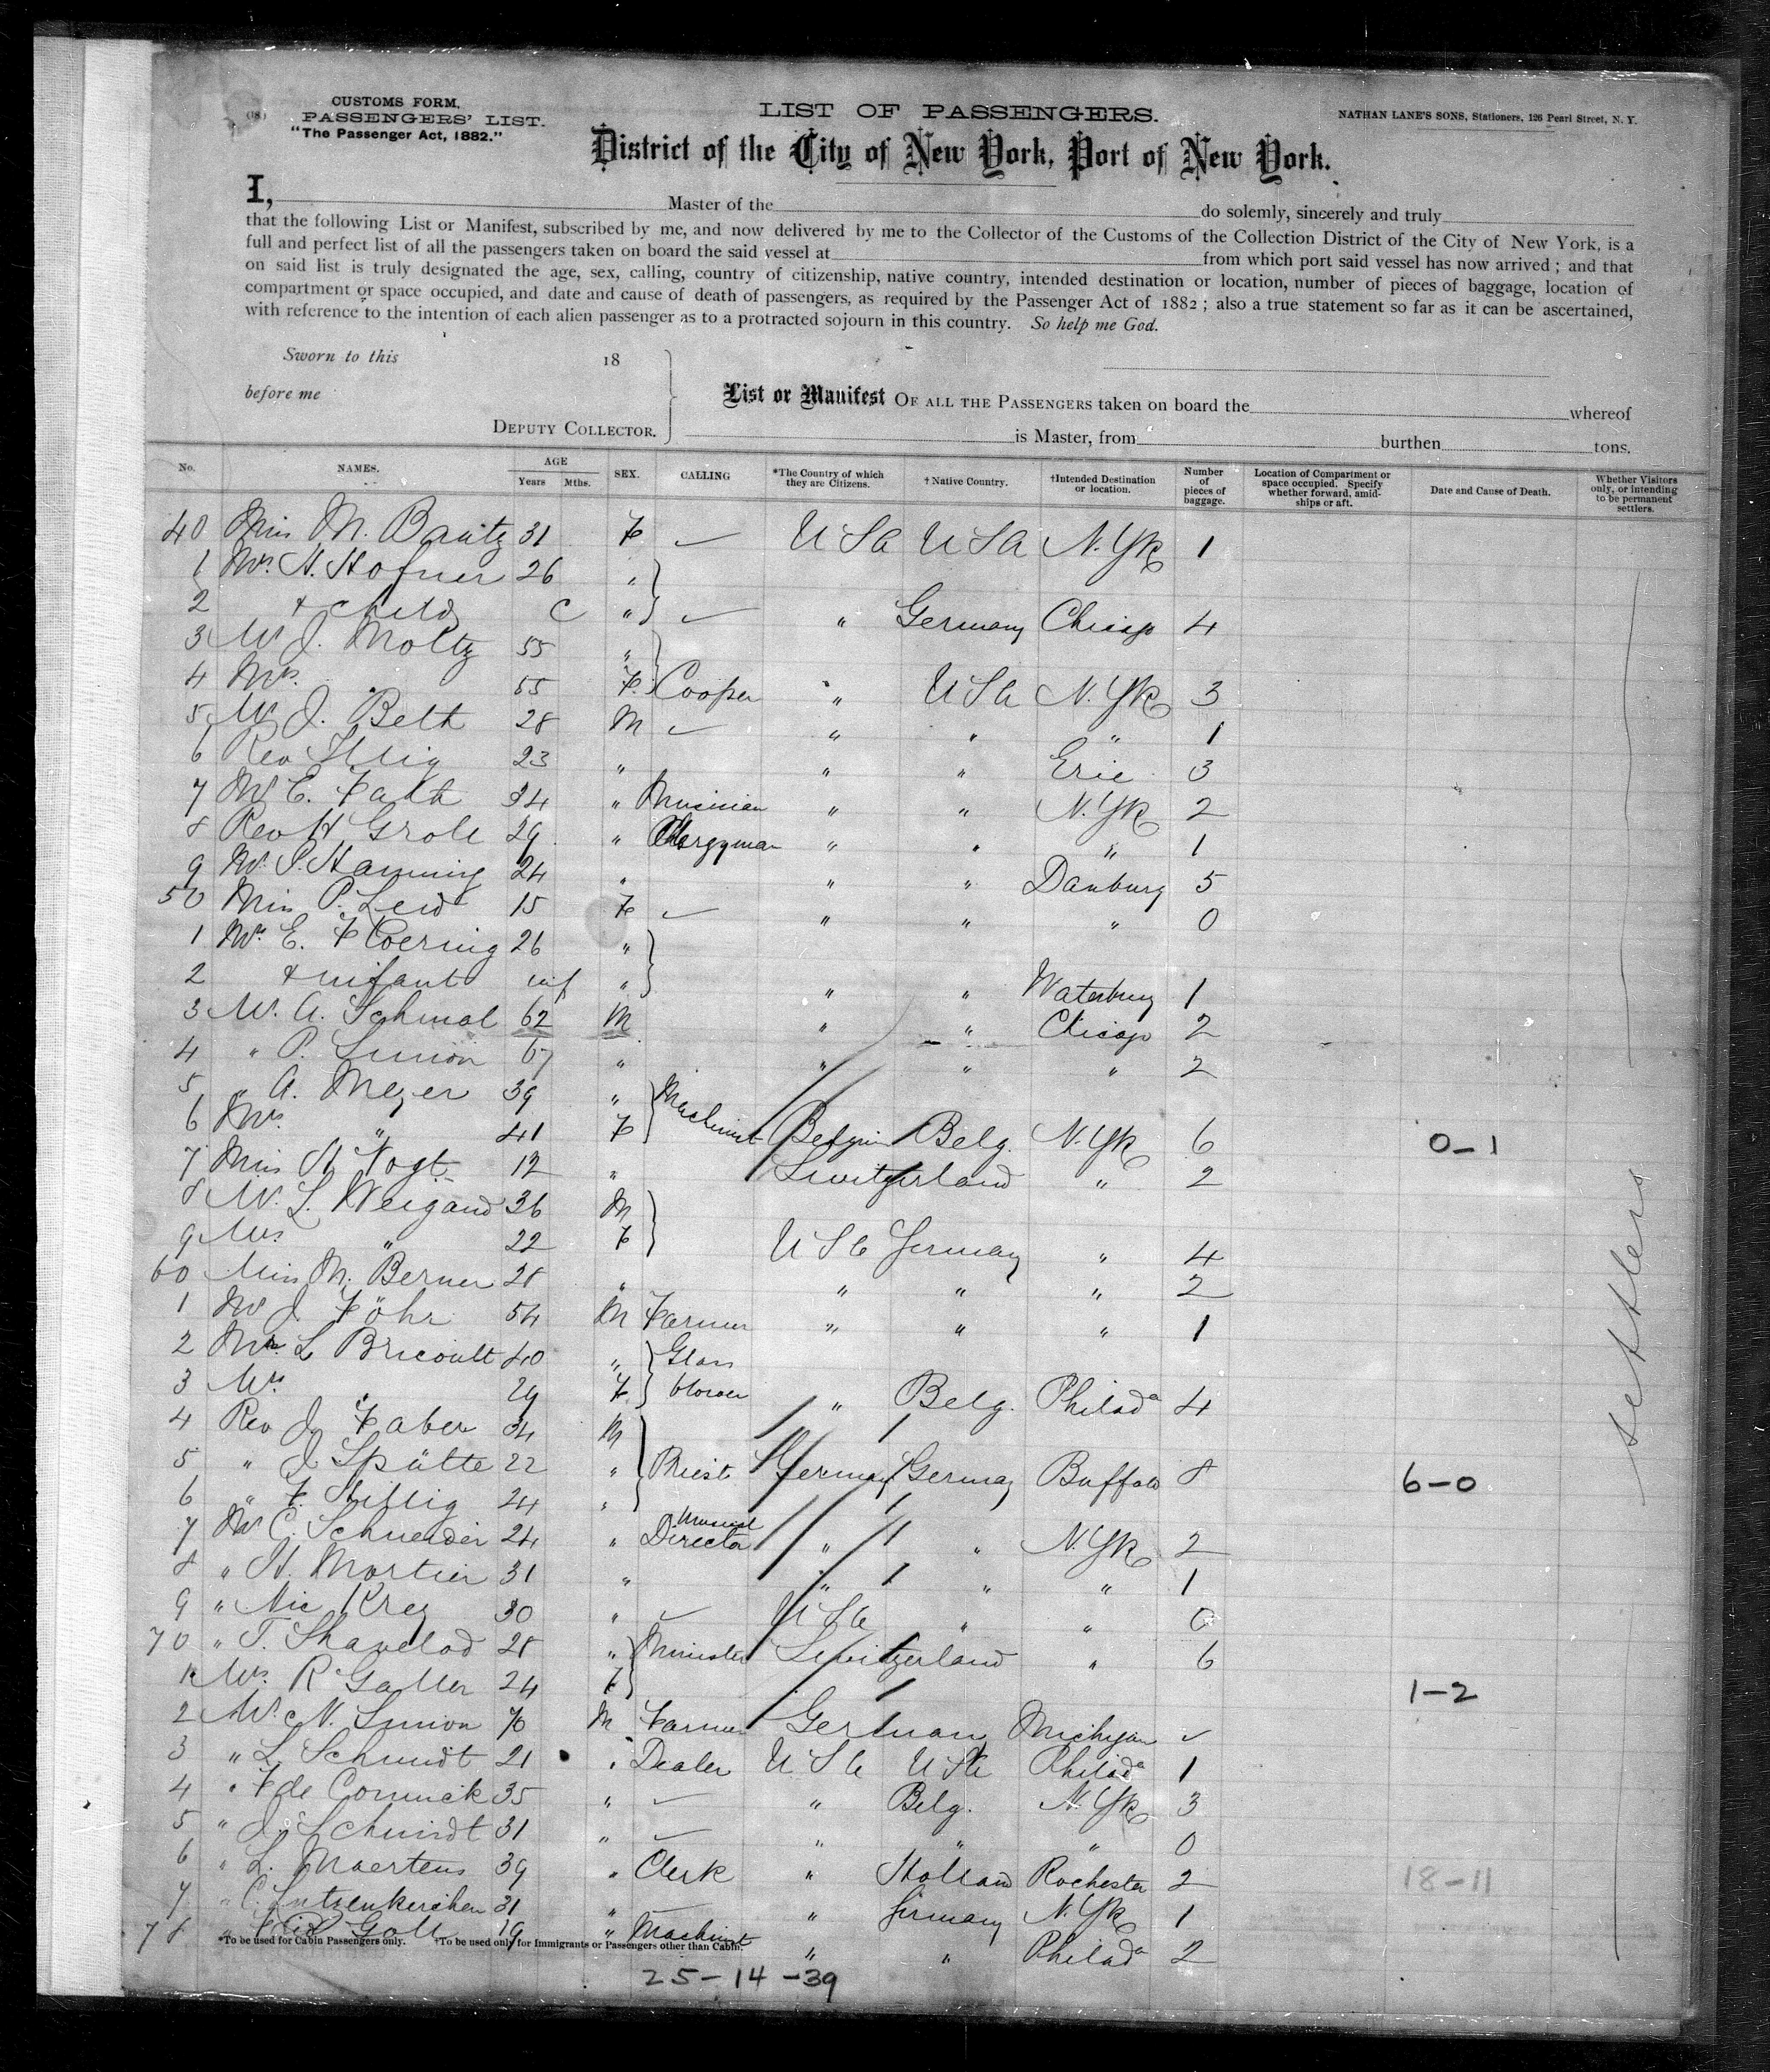 (18)
CUSTOMS FORM,
PASSENGERS' LIST.
"The Passenger Act, 1882."
LIST OF PASSENGERS.
NATHAN LANE'S SONS, Stationers, 126 Pearl Street, N. Y.
District of the City of New York, Port of New York.
I, Master of the do solemly, sincerely and truly
that the following List or Manifest, subscribed by me, and now delivered by me to the Collector of the Customs of the Collection District of the City of New York, is a
full and perfect list of all the passengers taken on board the said vessel at from which port said vessel has now arrived; and that
on said list is truly designated the age, sex, calling, country of citizenship, native country, intended destination or location, number of pieces of baggage, location of
compartment or space occupied, and date and cause of death of passengers, as required by the Passenger Act of 1882; also a true statement so far as it can be ascertained,
with reference to the intention of each alien passenger as to a protracted sojourn in this country. So help me God.
Sworn to this 18
before me
DEPUTY COLLECTOR.
List or Manifest OF ALL THE PASSENGERS taken on board the whereof
is Master, from burthen tons.
No. NAMES. AGE Years Mths. SEX. CALLING *The Country of which they are Citizens. †Native Country. †Intended Destination or location. Number of pieces of baggage. Location of Compartment or space occupied. Specify whether forward, amidships or aft. Date and Cause of Death. Whether Visitors only, or intending to be permanent settlers.
40 Miss M. Bautz 31 F USA USA N.Yk 1
1 Mrs. H. Hofner 26 "
2 + child C " " Germany Chicago 4
3 Mr J. Moltz 55 "
4 Mrs. " 55 F Cooper " USA N.Yk 3
5 Mr J. Beth 28 M " " " 1
6 Rev 23 " " " Erie 3
7 Mr E. Fath 34 " Musician " " N.Yk 2
8 Rev H Grole 29 " Clergyman " " " 1
9 Mr. Hamming 24 " " " Danbury 5
50 Miss P. Leid 15 F " " " 0
1 Mrs. E. Floering 26 "
2 + infant inf " " " Waterbury 1
3 Mr. A. Schmal 62 M " " Chicago 2
4 " P. Simon 67 " " " " 2
5 " A. Meyer 39 "
6 Mrs. " 41 F Machinist Belgium Belg. N.Yk 6 0-1
7 Miss H Vogt 12 " Switzerland " 2
8 Mr. L. Weigand 36 M
9 Mrs " 22 F USA Germany " 4
60 Miss M. Berner 28 " " " " 2
1 Mr J Föhr 54 M Farmer " " " 1
2 Mr L Bricoult 40 " Glass
3 Mrs " 29 F blower " Belg. Philada 4
4 Rev J. Faber 34 M
5 " J Spätte 22 " Priest Germany Germany Buffalo 8 6-0
6 " F. 24 "
7 Mr C. Schneider 24 " Musical Director " " N.Yk 2
8 " H. Mortier 31 " " " " 1
9 " Nic Krey 30 " USA " " 0
70 " T. 28 " Minister Switzerland " 6
1 Mrs. R Galler 24 F 1-2
2 Mr. N. Simon 70 M Farmer Germany Michigan
3 " L Schmidt 21 " Dealer USA USA Philada 1
4 " F de Cornick 35 " " Belg. N.Yk 3
5 " J. Schmidt 31 " " " " 0
6 " L. Maertens 39 " Clerk " Holland Rochester 2 18-11
7 " C Lutzenkirchen 31 " " Germany N.Yk 1
78 " Goll 19 " Machinist " " Philada 2
settlers
*To be used for Cabin Passengers only. †To be used only for Immigrants or Passengers other than Cabin.
25-14-39